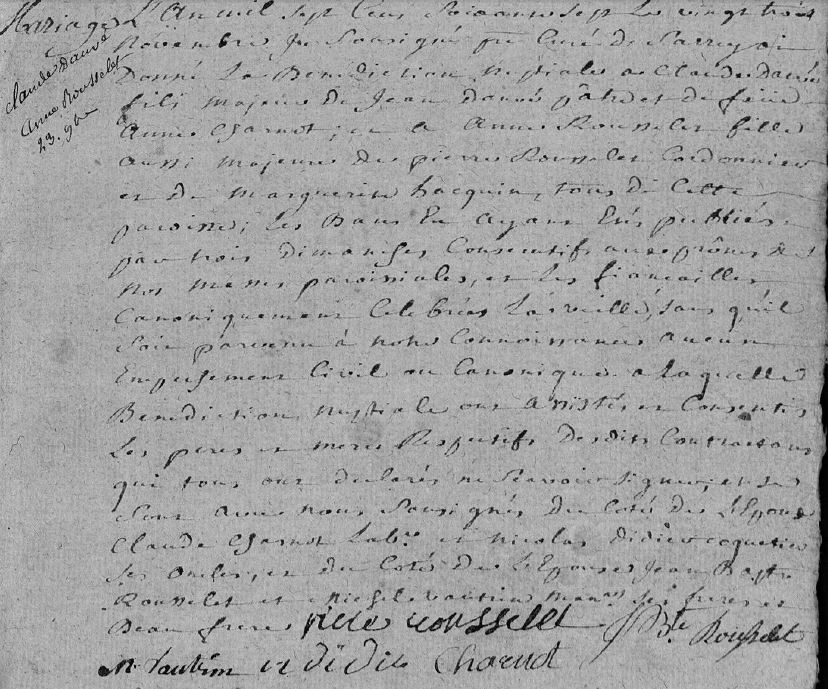 Mariage
Claude Dauvé
Anne Rousselet
23. 9bre
L'An mil sept Cens Soixante sept Le vingt trois
Novembre, Je Soussigné ptre Curé de Sarrey ai
Donné La Benediction Nuptiale a Claude Dauvé
fils majeur de Jean Dauvé pâtre et de feüe
Anne Charnot; et a Anne Rousselet fille
aussi majeure de pierre Rousselet Cordonnier
et de Marguerite Jacquin, tous de Cette
paroisse; Les Bans En Ayant Etés publiés
par trois dimanches Consecutifs aux prônes de
nos messes paroissiales, et Les fiancailles
Canoniquement Celebrées La veille, sans qu'il
Soit parvenu à notre Connoissance aucun
Empechement Civil ou Canonique a Laquelle
Benediction nuptiale ont Assistés et Consentis
Les peres et meres Respectifs desdits Contractans
qui tous ont declarés ne Scavoir Signer, et se
sont avec nous Soussignés du Coté de L'Epoux
Claude Charnot Labr. et nicolas didier coquetier
Ses oncles, et du Coté de L'Epouse Jean Bapte
Rousselet et Michel vautrin man. Ses freres et
Beau frere
piere rousselet JBte Rousselet
M. Vautrin n didie Charnot